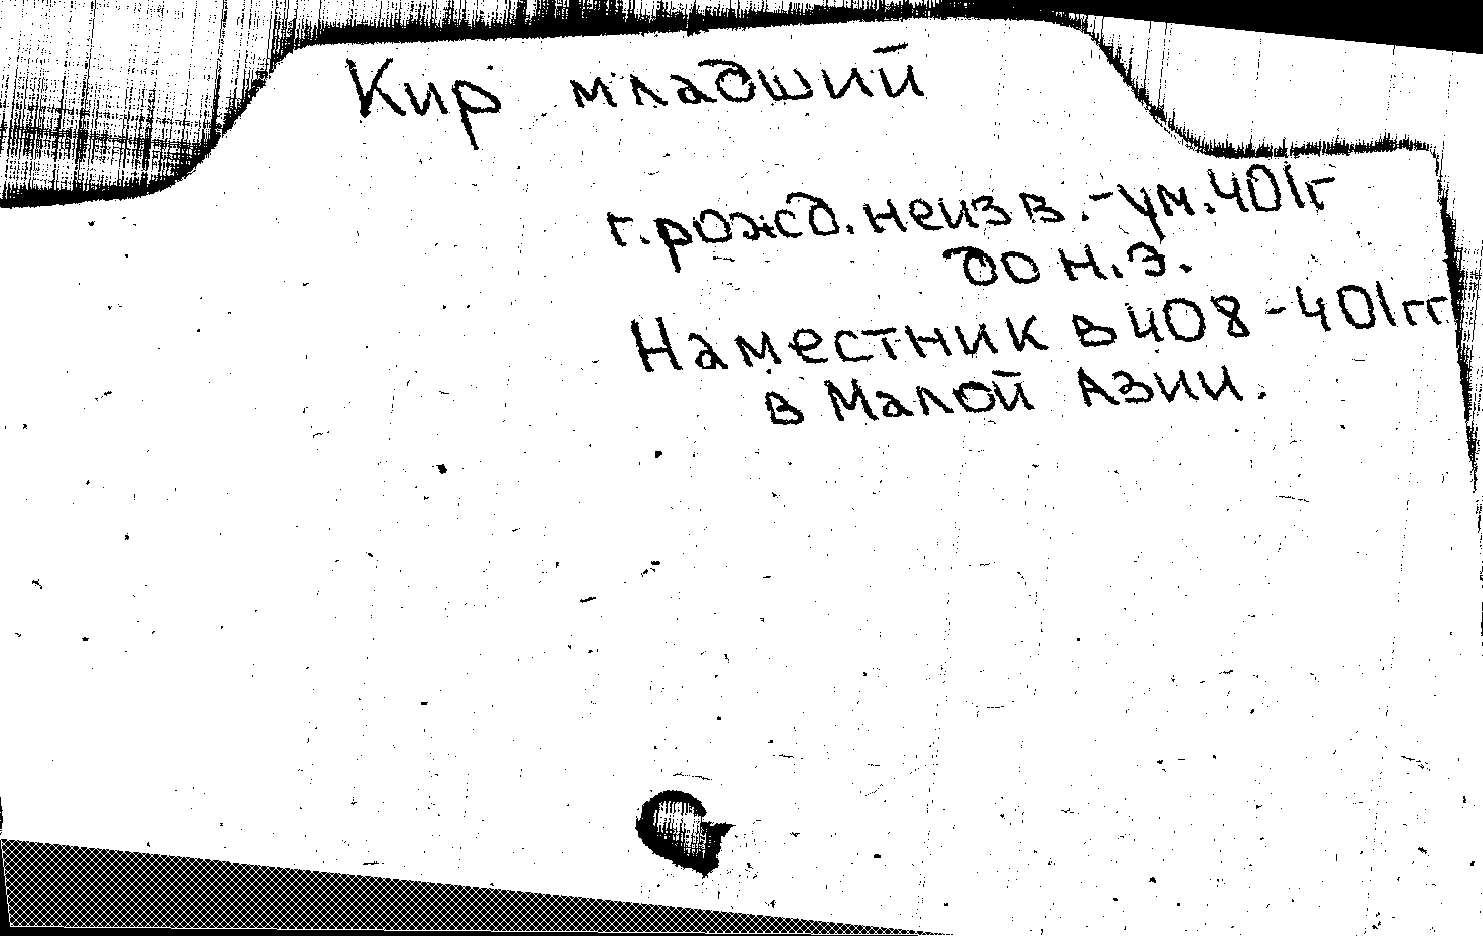 Кир младший
г. рожд. неизв. - ум. 401г
до н.э.
Наместник в 408-401гг
в Малой Азии.